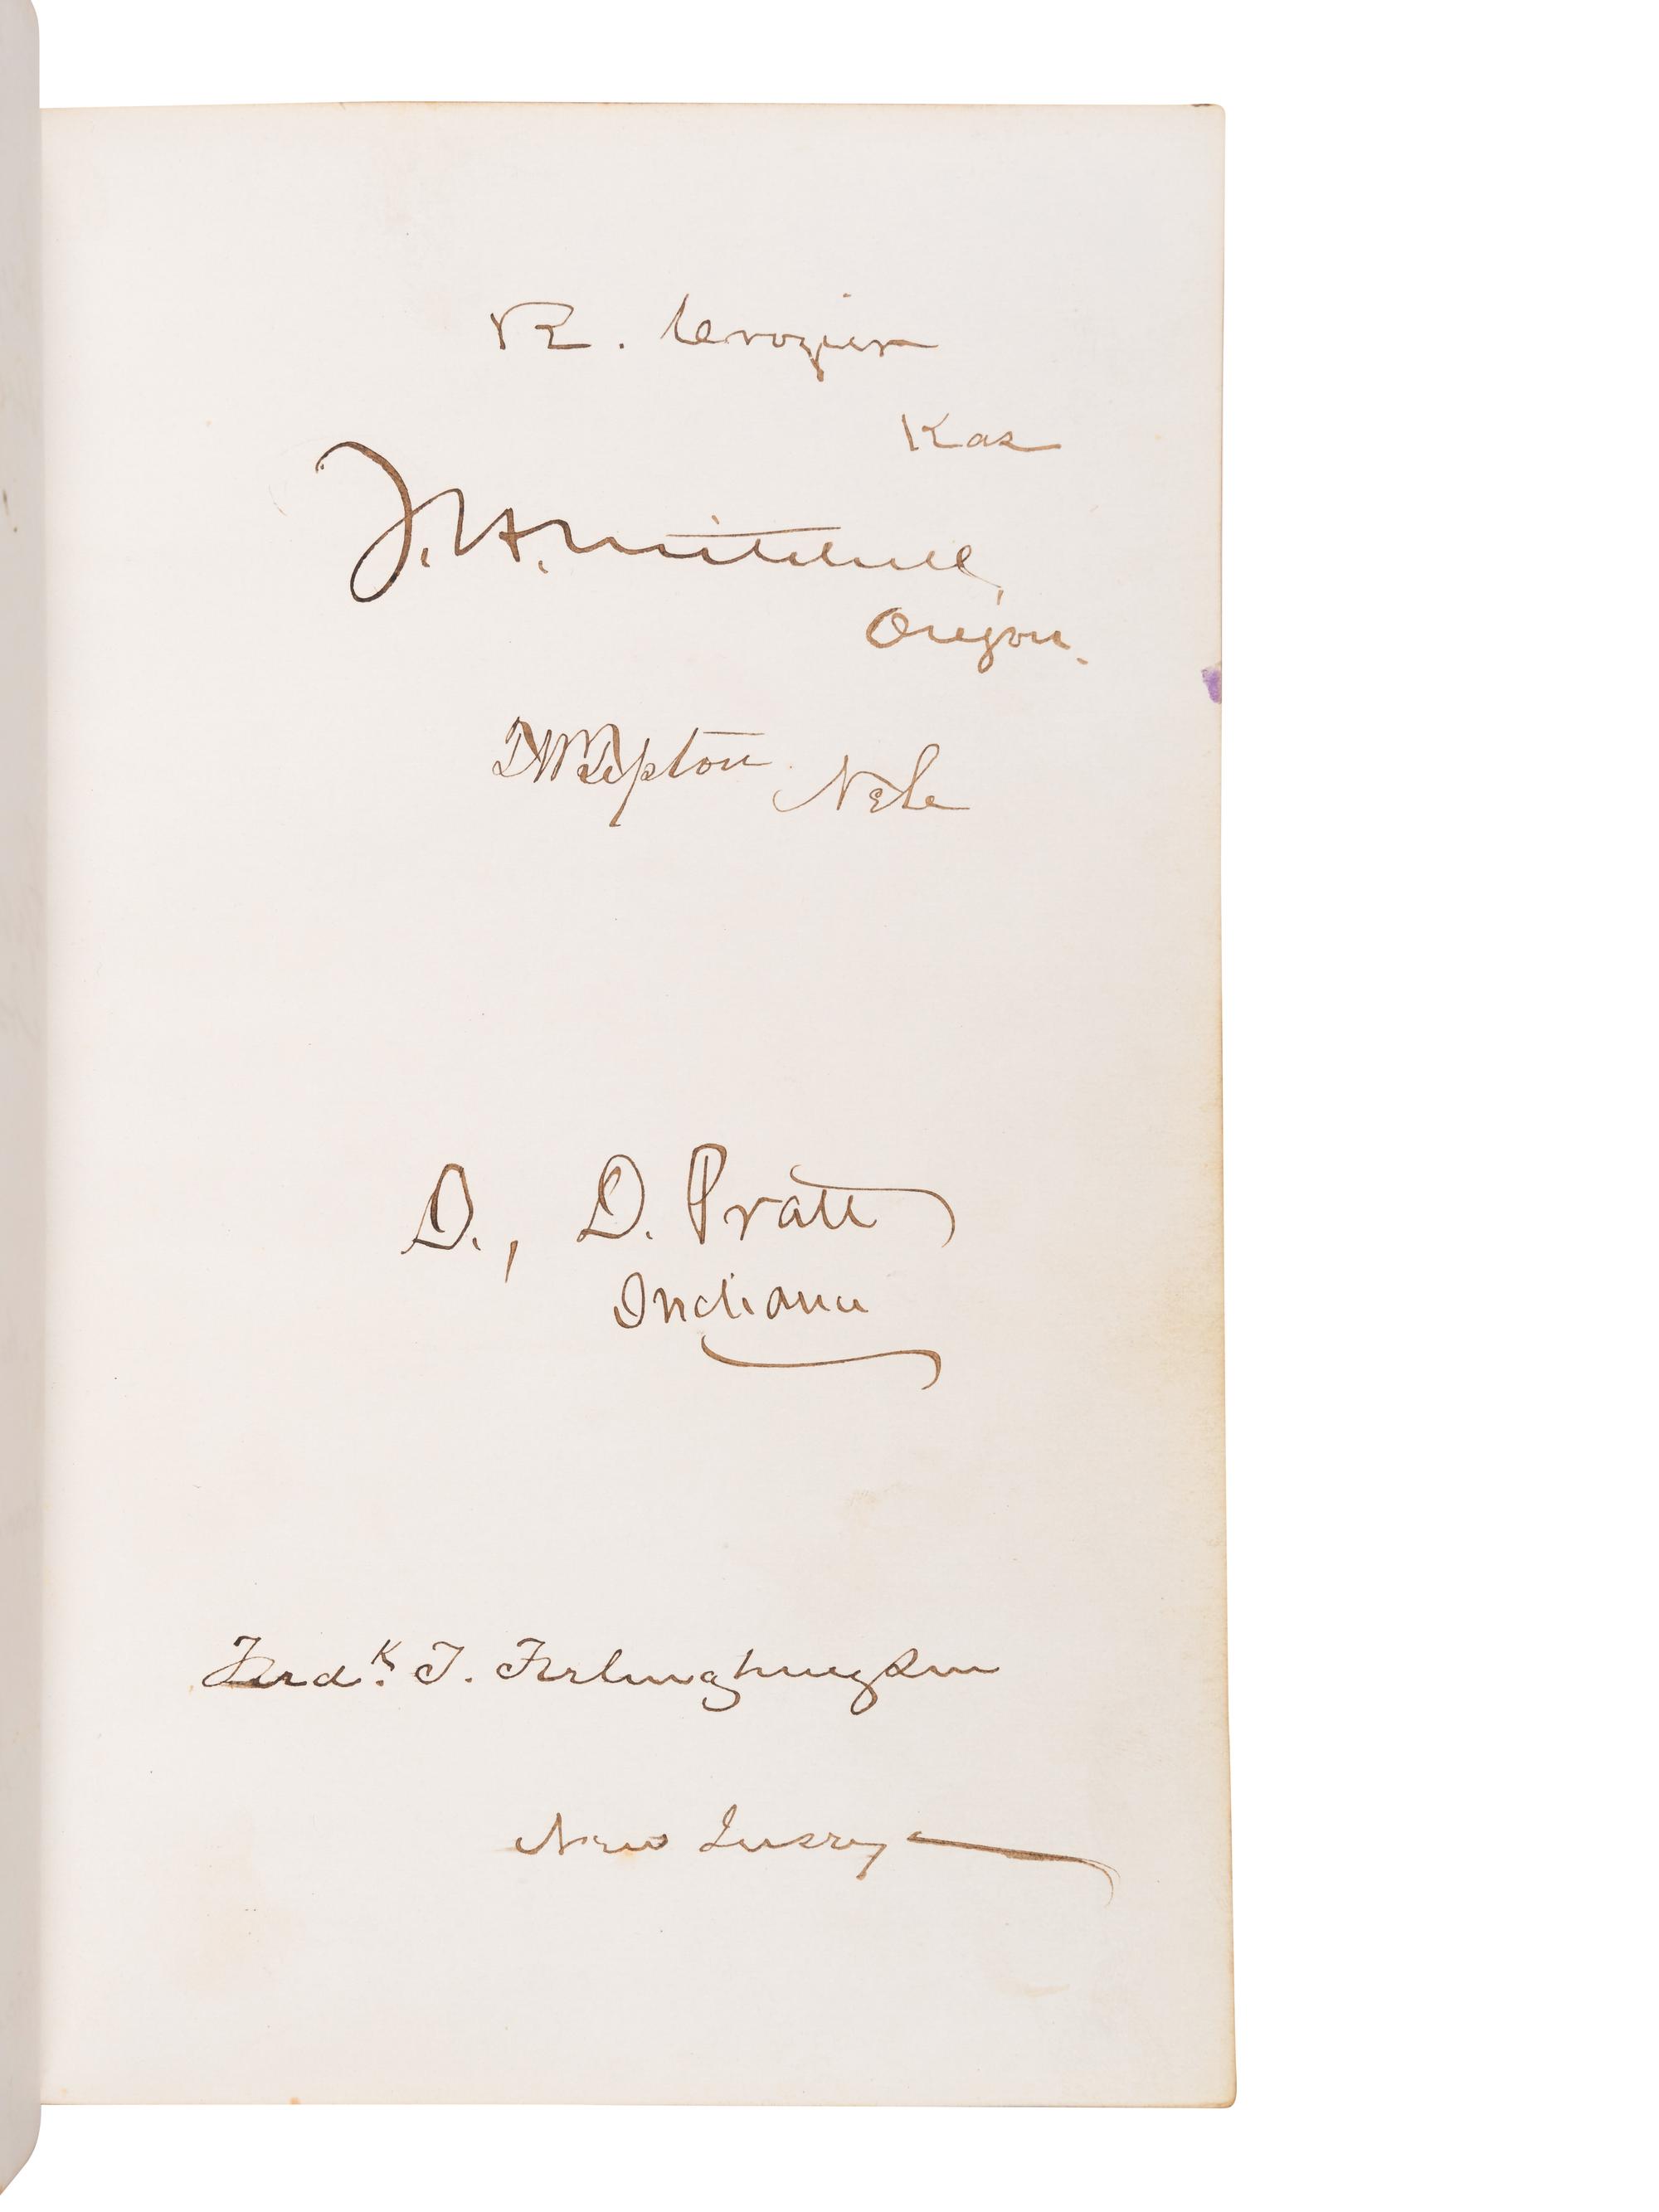 R. Crozier
Kas
J. H. Mitchell,
Oregon.
T W Tipton Neb
D., D. Pratt
Indiana
Fredk. T. Frelinghuysen
New Jersey